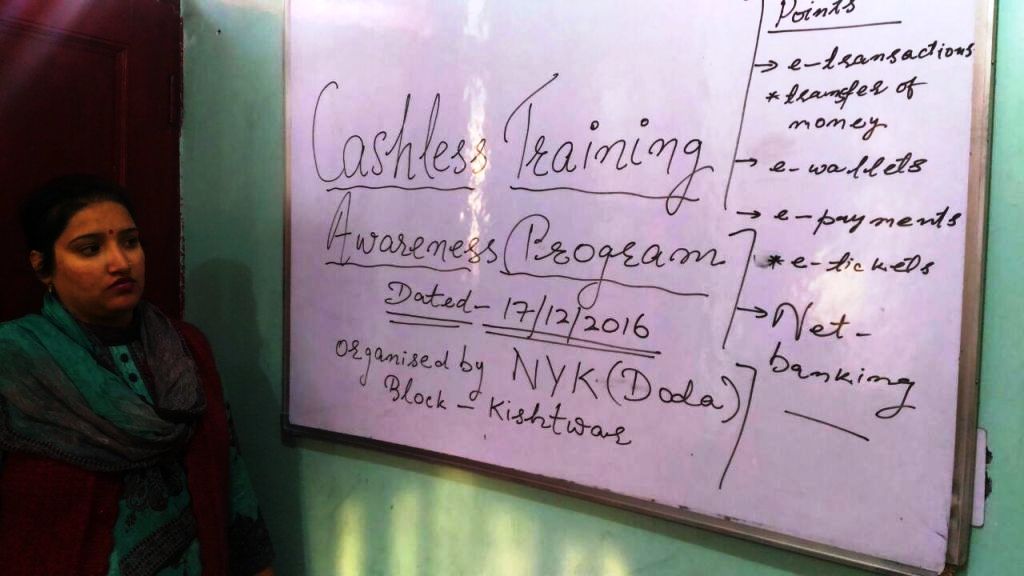 Cashless Training
Awareness Program
Dated- 17/12/2016
organised by NYK (Doda)
Block - Kishtwar
Points
→ e-transactions
* transfer of
money
→ e-wallets
→ e-payments
* e-tickets
→ Net-
banking